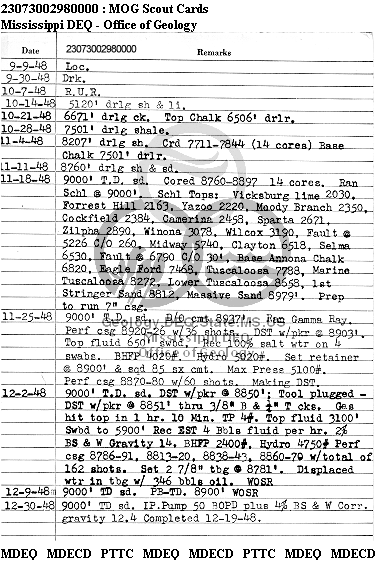 23073002980000 : MOG Scout Cards
Mississippi DEQ - Office of Geology
Date 23073002980000 Remarks
9-9-48 Loc.
9-30-48 Drk.
10-7-48 R.U.R.
10-14-48 5120' drlg sh & li.
10-21-48 6671' drlg ck. Top Chalk 6506' drlr.
10-28-48 7501' drlg shale.
11-4-48 8207' drlg sh. Crd 7711-7844 (14 cores) Base
Chalk 7501' drlr.
11-11-48 8760' drlg sh & sd.
11-18-48 9000' T.D. sd. Cored 8760-8897 14 cores. Ran
Schl @ 9000'. Schl Tops: Vicksburg lime 2030,
Forrest Hill 2163, Yazoo 2220, Moody Branch 2350,
Cockfield 2384, Camerina 2458, Sparta 2671,
Zilpha 2890, Winona 3078, Wilcox 3190, Fault @
5226 C/O 260, Midway 5740, Clayton 6518, Selma
6530, Fault @ 6790 C/O 30', Base Annona Chalk
6820, Eagle Ford 7468, Tuscaloosa 7788, Marine
Tuscaloosa 8272, Lower Tuscaloosa 8658, 1st
Stringer Sand 8812, Massive Sand 8979'. Prep
to run 7" csg.
11-25-48 9000' T.D. sd. D/O cmt 8937'. Ran Gamma Ray.
Perf csg 8920-26 w/36 shots. DST w/pkr @ 8903'.
Top fluid 650' swbd. Rec 100% salt wtr on 4
swabs. BHFP 4020#. Hydro 5020#. Set retainer
@ 8900' & sqd 85 sx cmt. Max Press 5100#.
Perf csg 8870-80 w/60 shots. Making DST.
12-2-48 9000' T.D. sd. DST w/pkr @ 8850'; Tool plugged -
DST w/pkr @ 8851' thru 3/8" B & ¼" T cks. Gas
hit top in 1 hr. 10 Min. TP 4#. Top fluid 3100'
Swbd to 5900' Rec EST 4 Bbls fluid per hr. 2%
BS & W Gravity 14. BHFP 2400#. Hydro 4750# Perf
csg 8786-91, 8813-20, 8838-43, 8860-70 w/total of
162 shots. Set 2 7/8" tbg @ 8781'. Displaced
wtr in tbg w/ 346 bbls oil. WOSR
12-9-48 9000' TD sd. PB-TD. 8900' WOSR
12-30-48 9000' TD sd. IP.Pump 50 BOPD plus 4% BS & W Corr.
gravity 12.4 Completed 12-19-48.
MDEQ MDECD PTTC MDEQ MDECD PTTC MDEQ MDECD